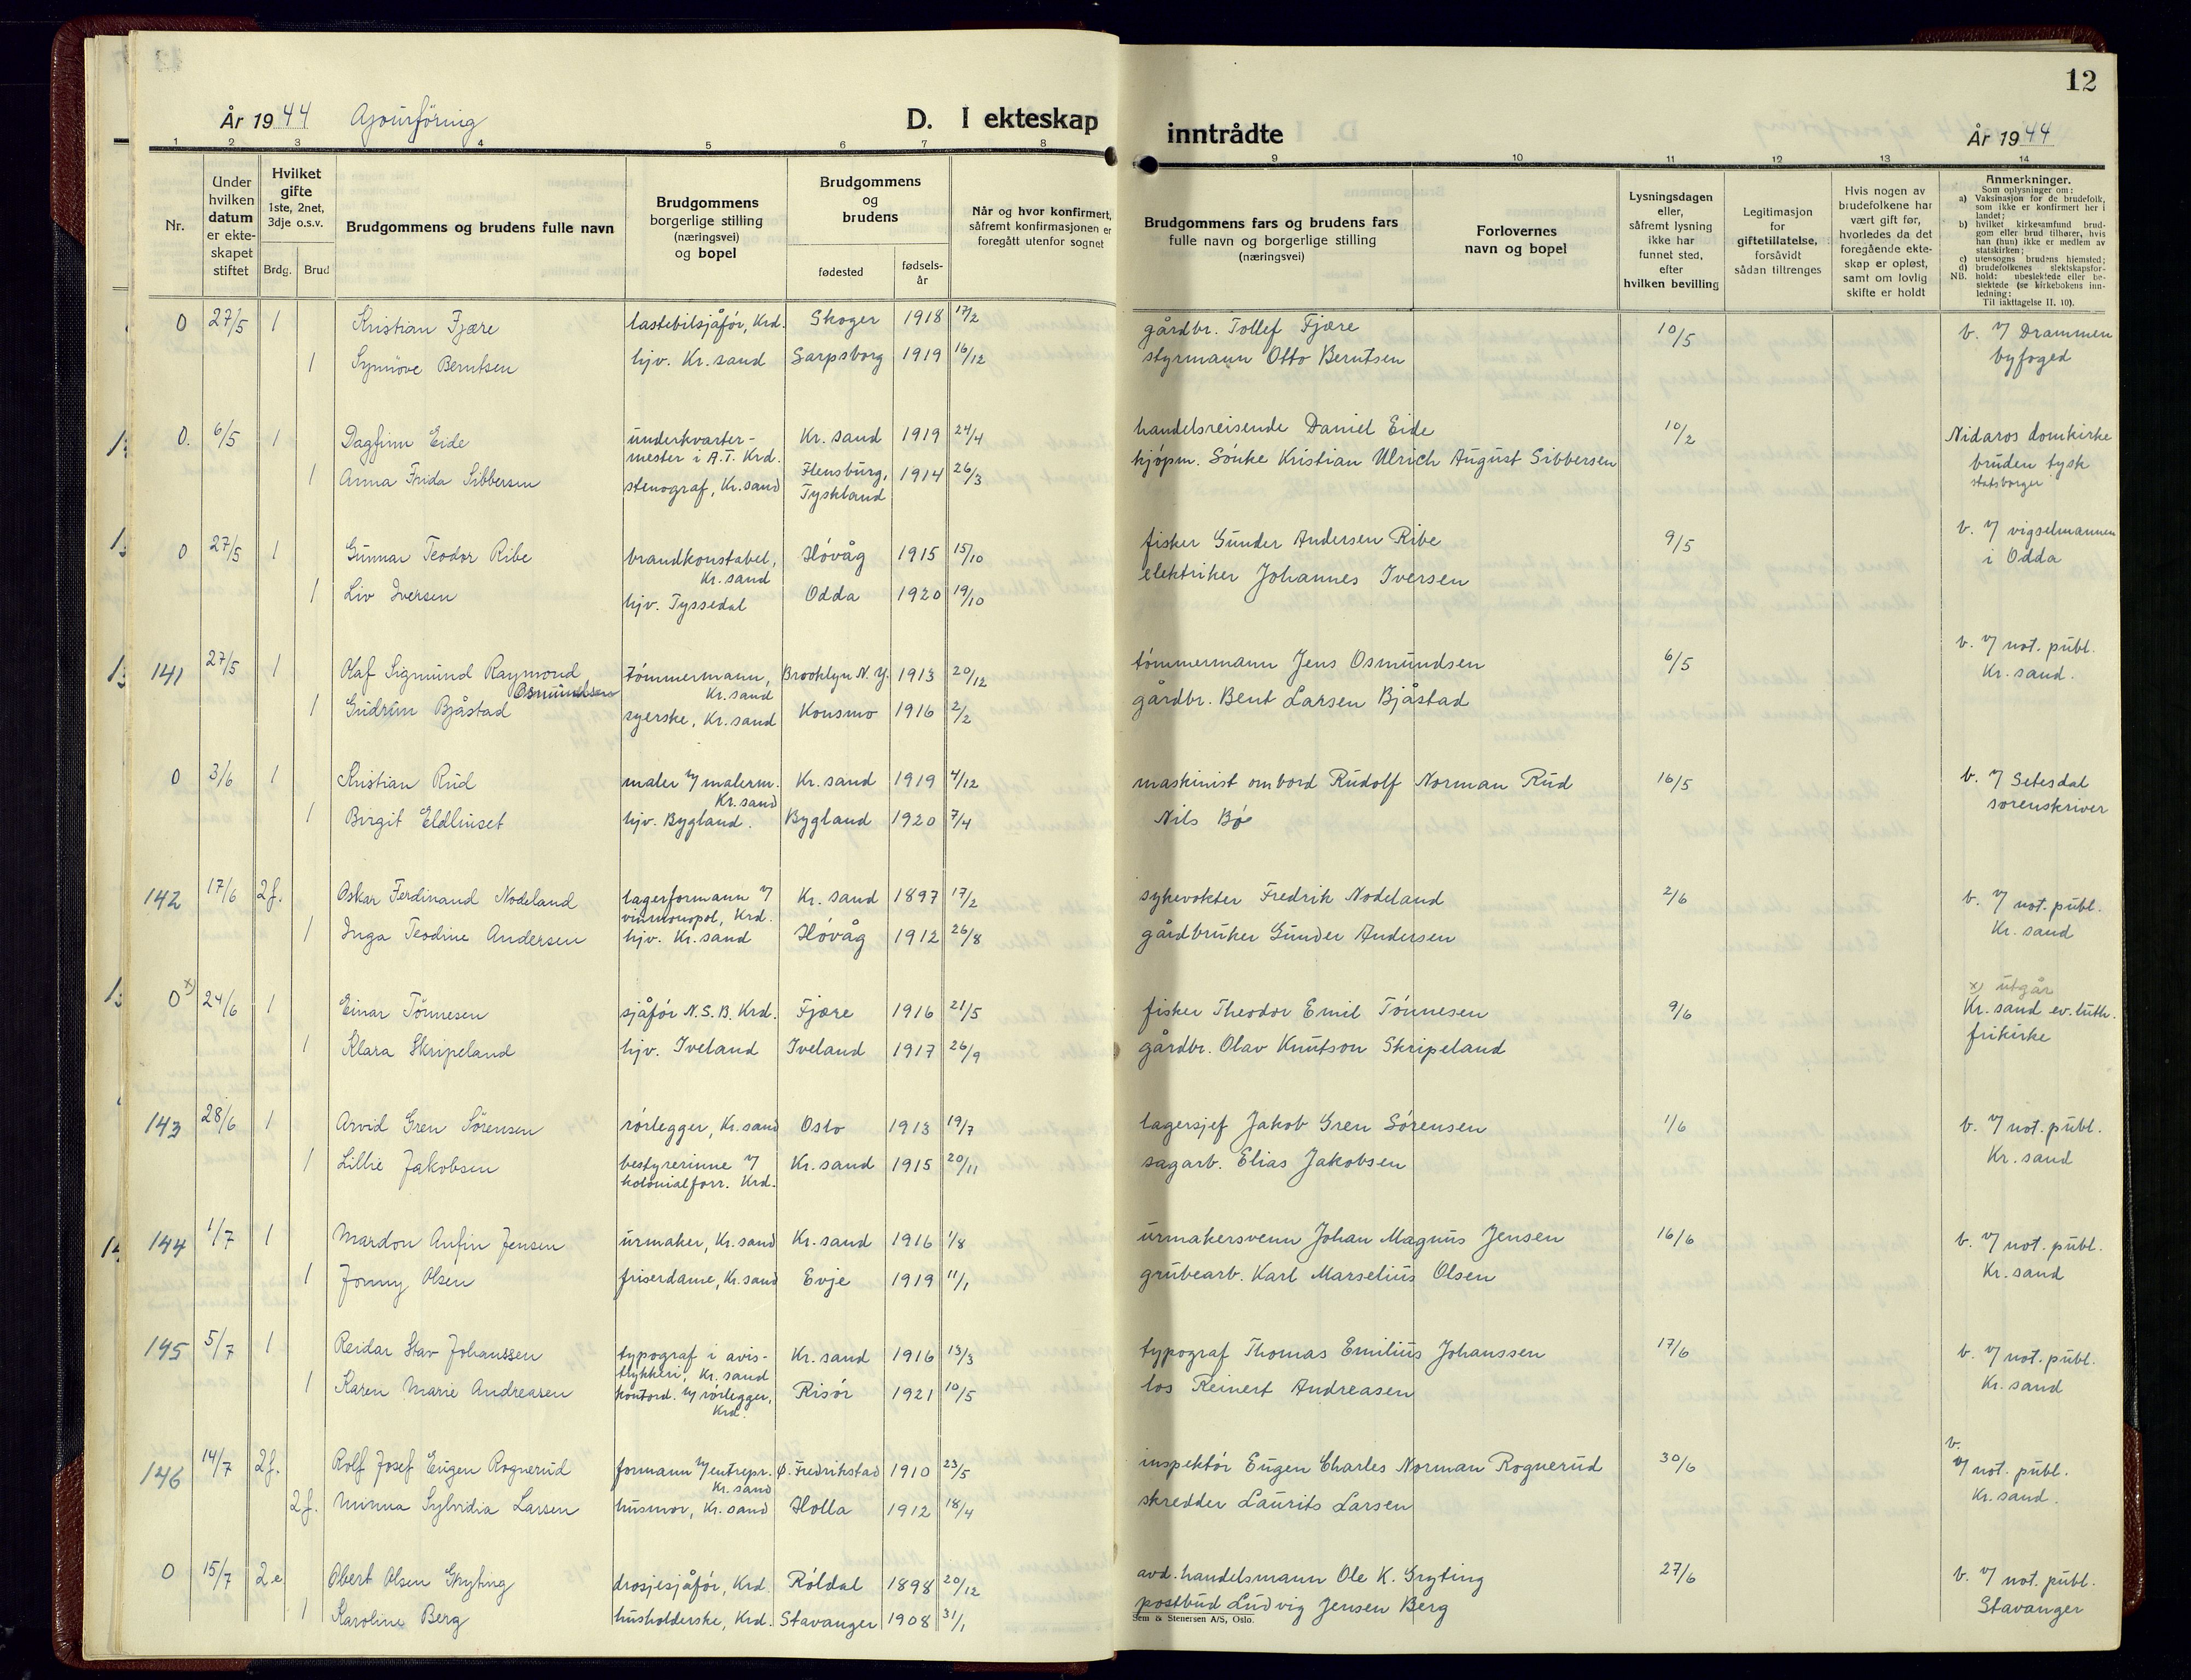 12
År 1944 Ajourföring D. I ekteskap inntrådte År 1944
1 2 3 4 5 6 7 8 9 10 11 12 13 14
Nr.
Under hvilken datum er ekte-skapet stiftet
Hvilket gifte 1ste, 2net, 3dje o.s.v.
Brdg. Brud
Brudgommens og brudens fulle navn
Brudgommens borgerlige stilling (næringsvei) og bopel
Brudgommens og brudens
fødested
fødsels-år
Når og hvor konfirmert, såfremt konfirmasjonen er foregått utenfor sognet
Brudgommens fars og brudens fars fulle navn og borgerlige stilling (næringsvei)
Forlovernes navn og bopel
Lysningsdagen eller, såfremt lysning ikke har funnet sted, efter hvilken bevilling
Legitimasjon for giftetillatelse, forsåvidt sådan tiltrenges
Hvis nogen av brudefolkene har vært gift før, hvorledes da det foregående ekte-skap er opløst, samt om lovlig skifte er holdt
Anmerkninger.
Som oplysninger om:
a) Vaksinasjon for de brudefolk, som ikke er konfirmert her i landet;
b) hvilket kirkesamfund brud-gom eller brud tilhører, hvis han (hun) ikke er medlem av statskirken;
c) utensogns brudens hjemsted;
d) brudefolkenes slektskapsfor-hold: ubeslektede eller be-slektede (se kirkebokens inn-ledning:
NB. Til iakttagelse II. 10).
0 27/5 1 Kristian Fjære lastebilsjåfør, Krd. Skoger 1918 17/2 gårdbr. Tollef Fjære 10/5 b. v/ Drammen
1 Synnöve Berntsen hjv. Kr. sand Sarpsborg 1919 16/12 styrmann Otto Berntsen byfoged
0. 6/5 1 Dagfinn Eide underkvarter- Kr. sand 1919 24/4 handelsreisende Daniel Eide 10/2 Nidaros domkirke
mester i A.T. Krd.
1 Anna Frida Sibbersen stenograf, Kr. sand Flensburg, 1914 26/3 kjøpm. Sönke Kristian Ulrich August Sibbersen bruden tysk
Tyskland statsborger
0 27/5 1 Gunnar Teodor Ribe brandkonstabel, Høvåg 1915 15/10 fisker Gunder Andersen Ribe 9/5 b. v/ vigselmannen
Kr. sand i Odda
1 Liv Iversen hjv. Tyssedal Odda 1920 19/10 elektriker Johannes Iversen
141 27/5 1 Olaf Sigmund Raymond tömmermann, Brooklyn N.Y. 1913 20/12 tömmermann Jens Osmundsen 6/5 b. v/ not. publ.
Osmundsen Kr. sand Kr. sand.
1 Gudrun Bjåstad syerske, Kr. sand Konsmo 1916 2/2 gårdbr. Bent Larsen Bjåstad
0 3/6 1 Kristian Rud maler v/ malerm. Kr. sand 1919 4/12 maskinist ombord Rudolf Norman Rud 16/5 b. v/ Setesdal
Kr. sand sorenskriver
1 Birgit Eldhuset hjv. Bygland. Bygland 1920 7/4 Nils Bø
142 17/6 2f. Oskar Ferdinand Nodeland lagerformann v/ Kr. sand 1897 17/2 sykevokter Fredrik Nodeland 2/6 b. v/ not. publ.
vinmonopol, Krd. Kr. sand
1 Inga Teodine Andersen hjv. Kr. sand Høvåg 1912 26/8 gårdbruker Gunder Andersen
0 x) 24/6 1 Einar Tönnesen sjåför N.S.B. Krd. Fjære 1916 21/5 fisker Theodor Emil Tönnesen 9/6 x) utgår
Kr. sand ev. luth.
1 Klara Skripeland hjv. Iveland Iveland 1917 26/9 gårdbr. Olav Knutson Skripeland frikirke
143 28/6 1 Arvid Gren Sörensen rörlegger, Kr. sand Oslo 1913 19/7 lagersjef Jakob Gren Sörensen 1/6 b. v/ not. publ.
1 Lillie Jakobsen bestyrerinne v/ Kr. sand 1915 20/11 sagarb. Elias Jakobsen Kr. sand
kolonialforr. Krd.
144 1/7 1 Mardon Anfin Jensen urmaker, Kr. sand Kr. sand 1916 1/8 urmakersvenn Johan Magnus Jensen 16/6 b. v/ not. publ.
1 Jonny Olsen friserdame, Kr. sand Evje 1919 11/1 grubearb. Karl Marselius Olsen Kr. sand
145 5/7 1 Reidar Stav Johanssen typograf i avis- Kr. sand 1916 13/3 typograf Thomas Emilius Johanssen 17/6 b. v/ not. publ.
trykkeri, Kr. sand
1 Karen Marie Andreasen kontord. v/ rörlegger, Risör 1921 10/5 los Reinert Andreasen Kr. sand
Krd.
146 14/7 2f. Rolf Josef Eugen Rognerud formann v/ entrepr. Ö. Fredrikstad 1910 23/5 inspektör Eugen Charles Norman Rognerud 30/6 b. v/ not. publ.
Kr. sand
2f. Minna Sylvidia Larsen husmor, Kr. sand Holla 1912 18/4 skredder Laurits Larsen Kr. sand.
0 15/7 2e Obert Olsen Gryting drosjesjåför, Krd. Röldal 1898 20/12 avd. handelsmann Ole K. Gryting 27/6 b. v/ not. publ.
1 Karoline Berg husholderske, Krd. Stavanger 1908 31/1 postbud Ludvig Jensen Berg Stavanger
Sem & Stenersen A/S, Oslo.